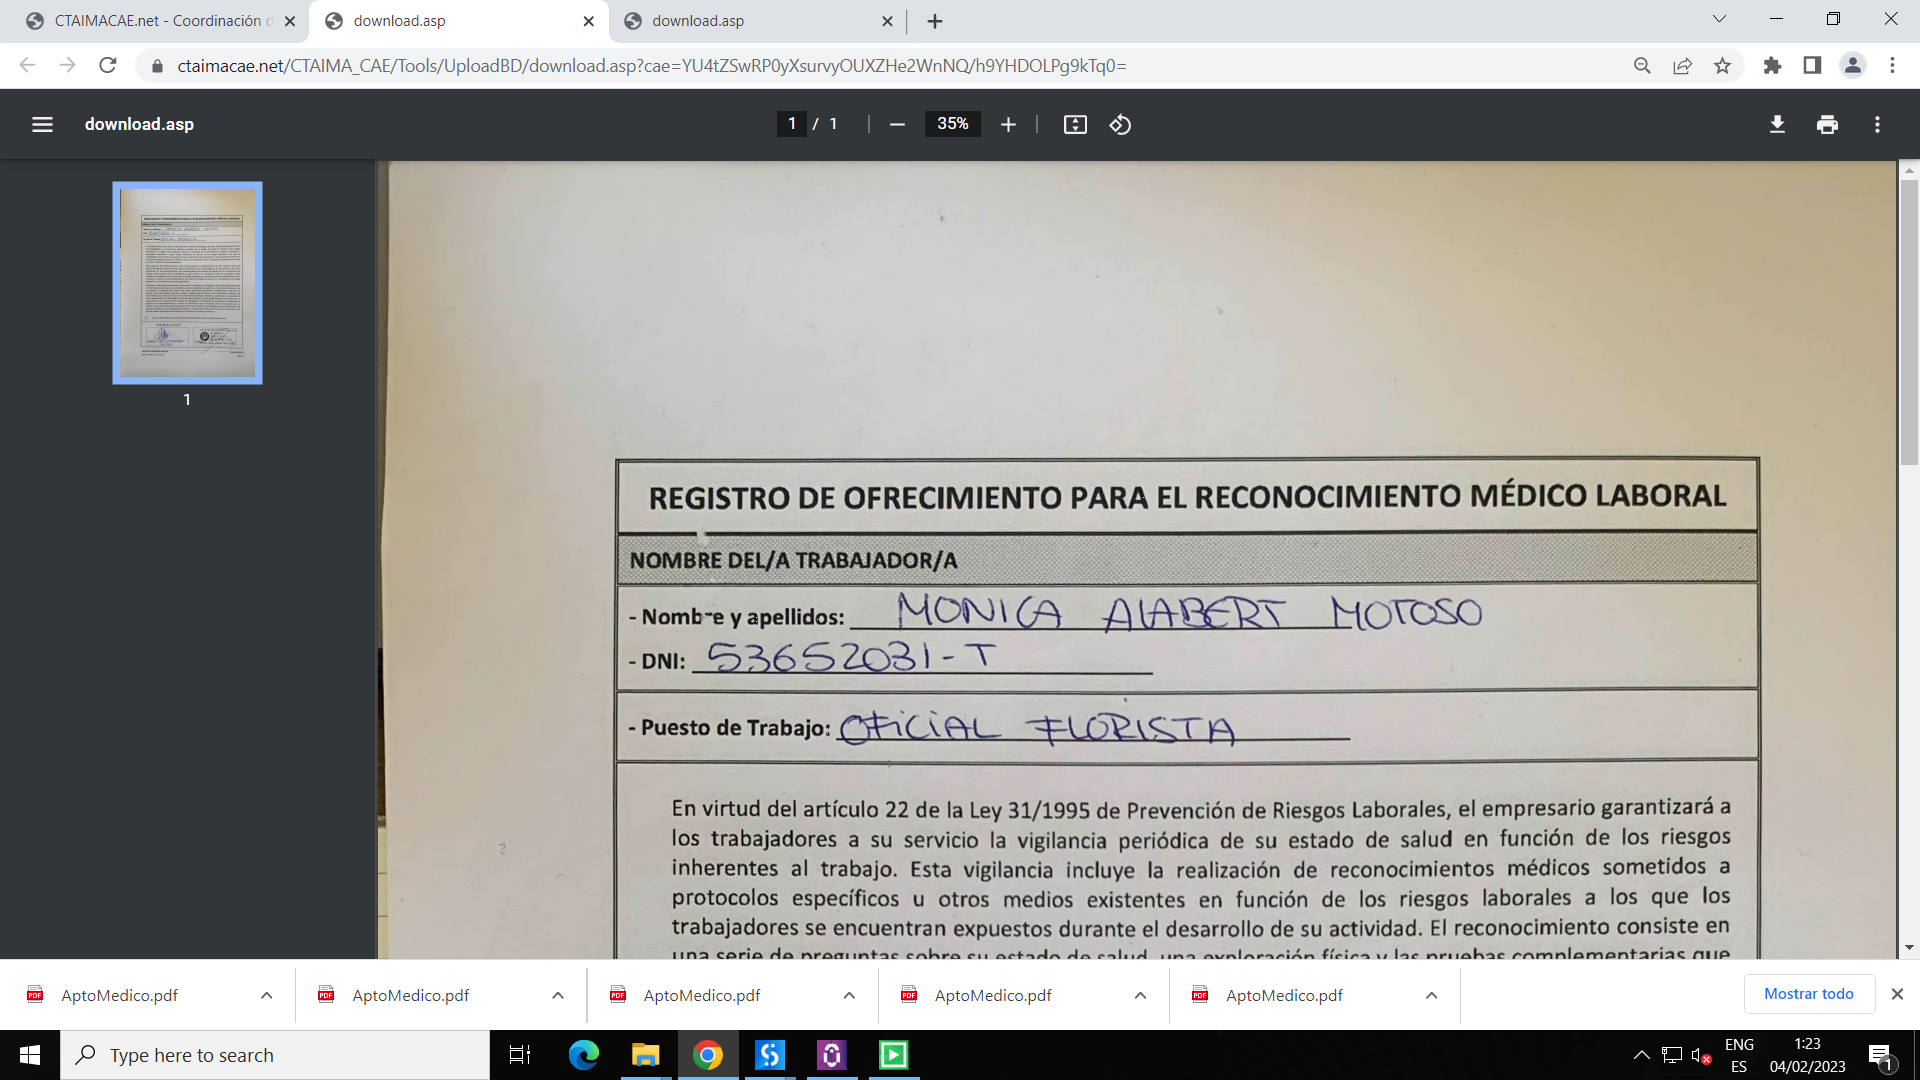 CTAIMACAE.net - Coordinación d
download.asp
download.asp
ctaimacae.net/CTAIMA_CAE/Tools/UploadBD/download.asp?cae=YU4tZSwRP0yXsurvyOUXZHe2WnNQ/h9YHDOLPg9kTq0=
download.asp
1 / 1
35%
1
REGISTRO DE OFRECIMIENTO PARA EL RECONOCIMIENTO MÉDICO LABORAL
NOMBRE DEL/A TRABAJADOR/A
- Nombre y apellidos: MONICA AlABERT MOTOSO
- DNI: 53652031-T
- Puesto de Trabajo: OFiCiAL FLORISTA
En virtud del artículo 22 de la Ley 31/1995 de Prevención de Riesgos Laborales, el empresario garantizará a
los trabajadores a su servicio la vigilancia periódica de su estado de salud en función de los riesgos
inherentes al trabajo. Esta vigilancia incluye la realización de reconocimientos médicos sometidos a
protocolos específicos u otros medios existentes en función de los riesgos laborales a los que los
trabajadores se encuentran expuestos durante el desarrollo de su actividad. El reconocimiento consiste en
una serie de preguntas sobre su estado de salud, una exploración física y las pruebas complementarias que
AptoMedico.pdf
AptoMedico.pdf
AptoMedico.pdf
AptoMedico.pdf
AptoMedico.pdf
Mostrar todo
Type here to search
ENG
ES
1:23
04/02/2023
1